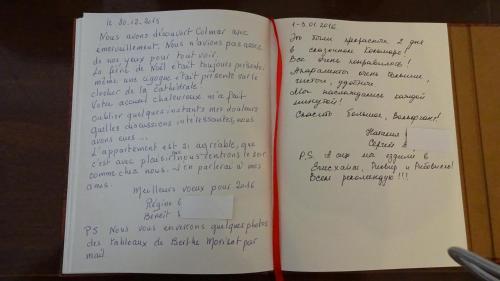 le 30.12.2015
Nous avons découvert Colmar avec
émerveillement. Nous n'avions pas assez
de nos yeux pour tout voir.
La féerie de Noël était toujours présente
même une cigogne était présente sur le
clocher de la cathédrale.
Votre accueil chaleureux m'a fait
oublier quelques instants mes douleurs
quelles discussions intéressantes nous
avons eues...
L'appartement est si agréable, que
c'est avec plaisir que nous rentrons le soir
comme chez nous. J'en parlerai à mes
amis.
Meilleurs voeux pour 2016
Régine
Benoit
PS Nous vous enverrons quelques photos
des tableaux de Berthe Morisot par
mail
1-3.01.2016
Это были прекрасных 2 дня
в сказочном Кольмаре!
Все очень понравилось!
Апартаменты очень большие,
чистые, удобные.
Мы наслаждались каждой
минутой!
Спасибо большое, Вольфганг!
Наталия
Сергей
P.S. А еще мы ездили в
Эгисхайм, Риквир и Рибовилле!
Всем рекомендую!!!